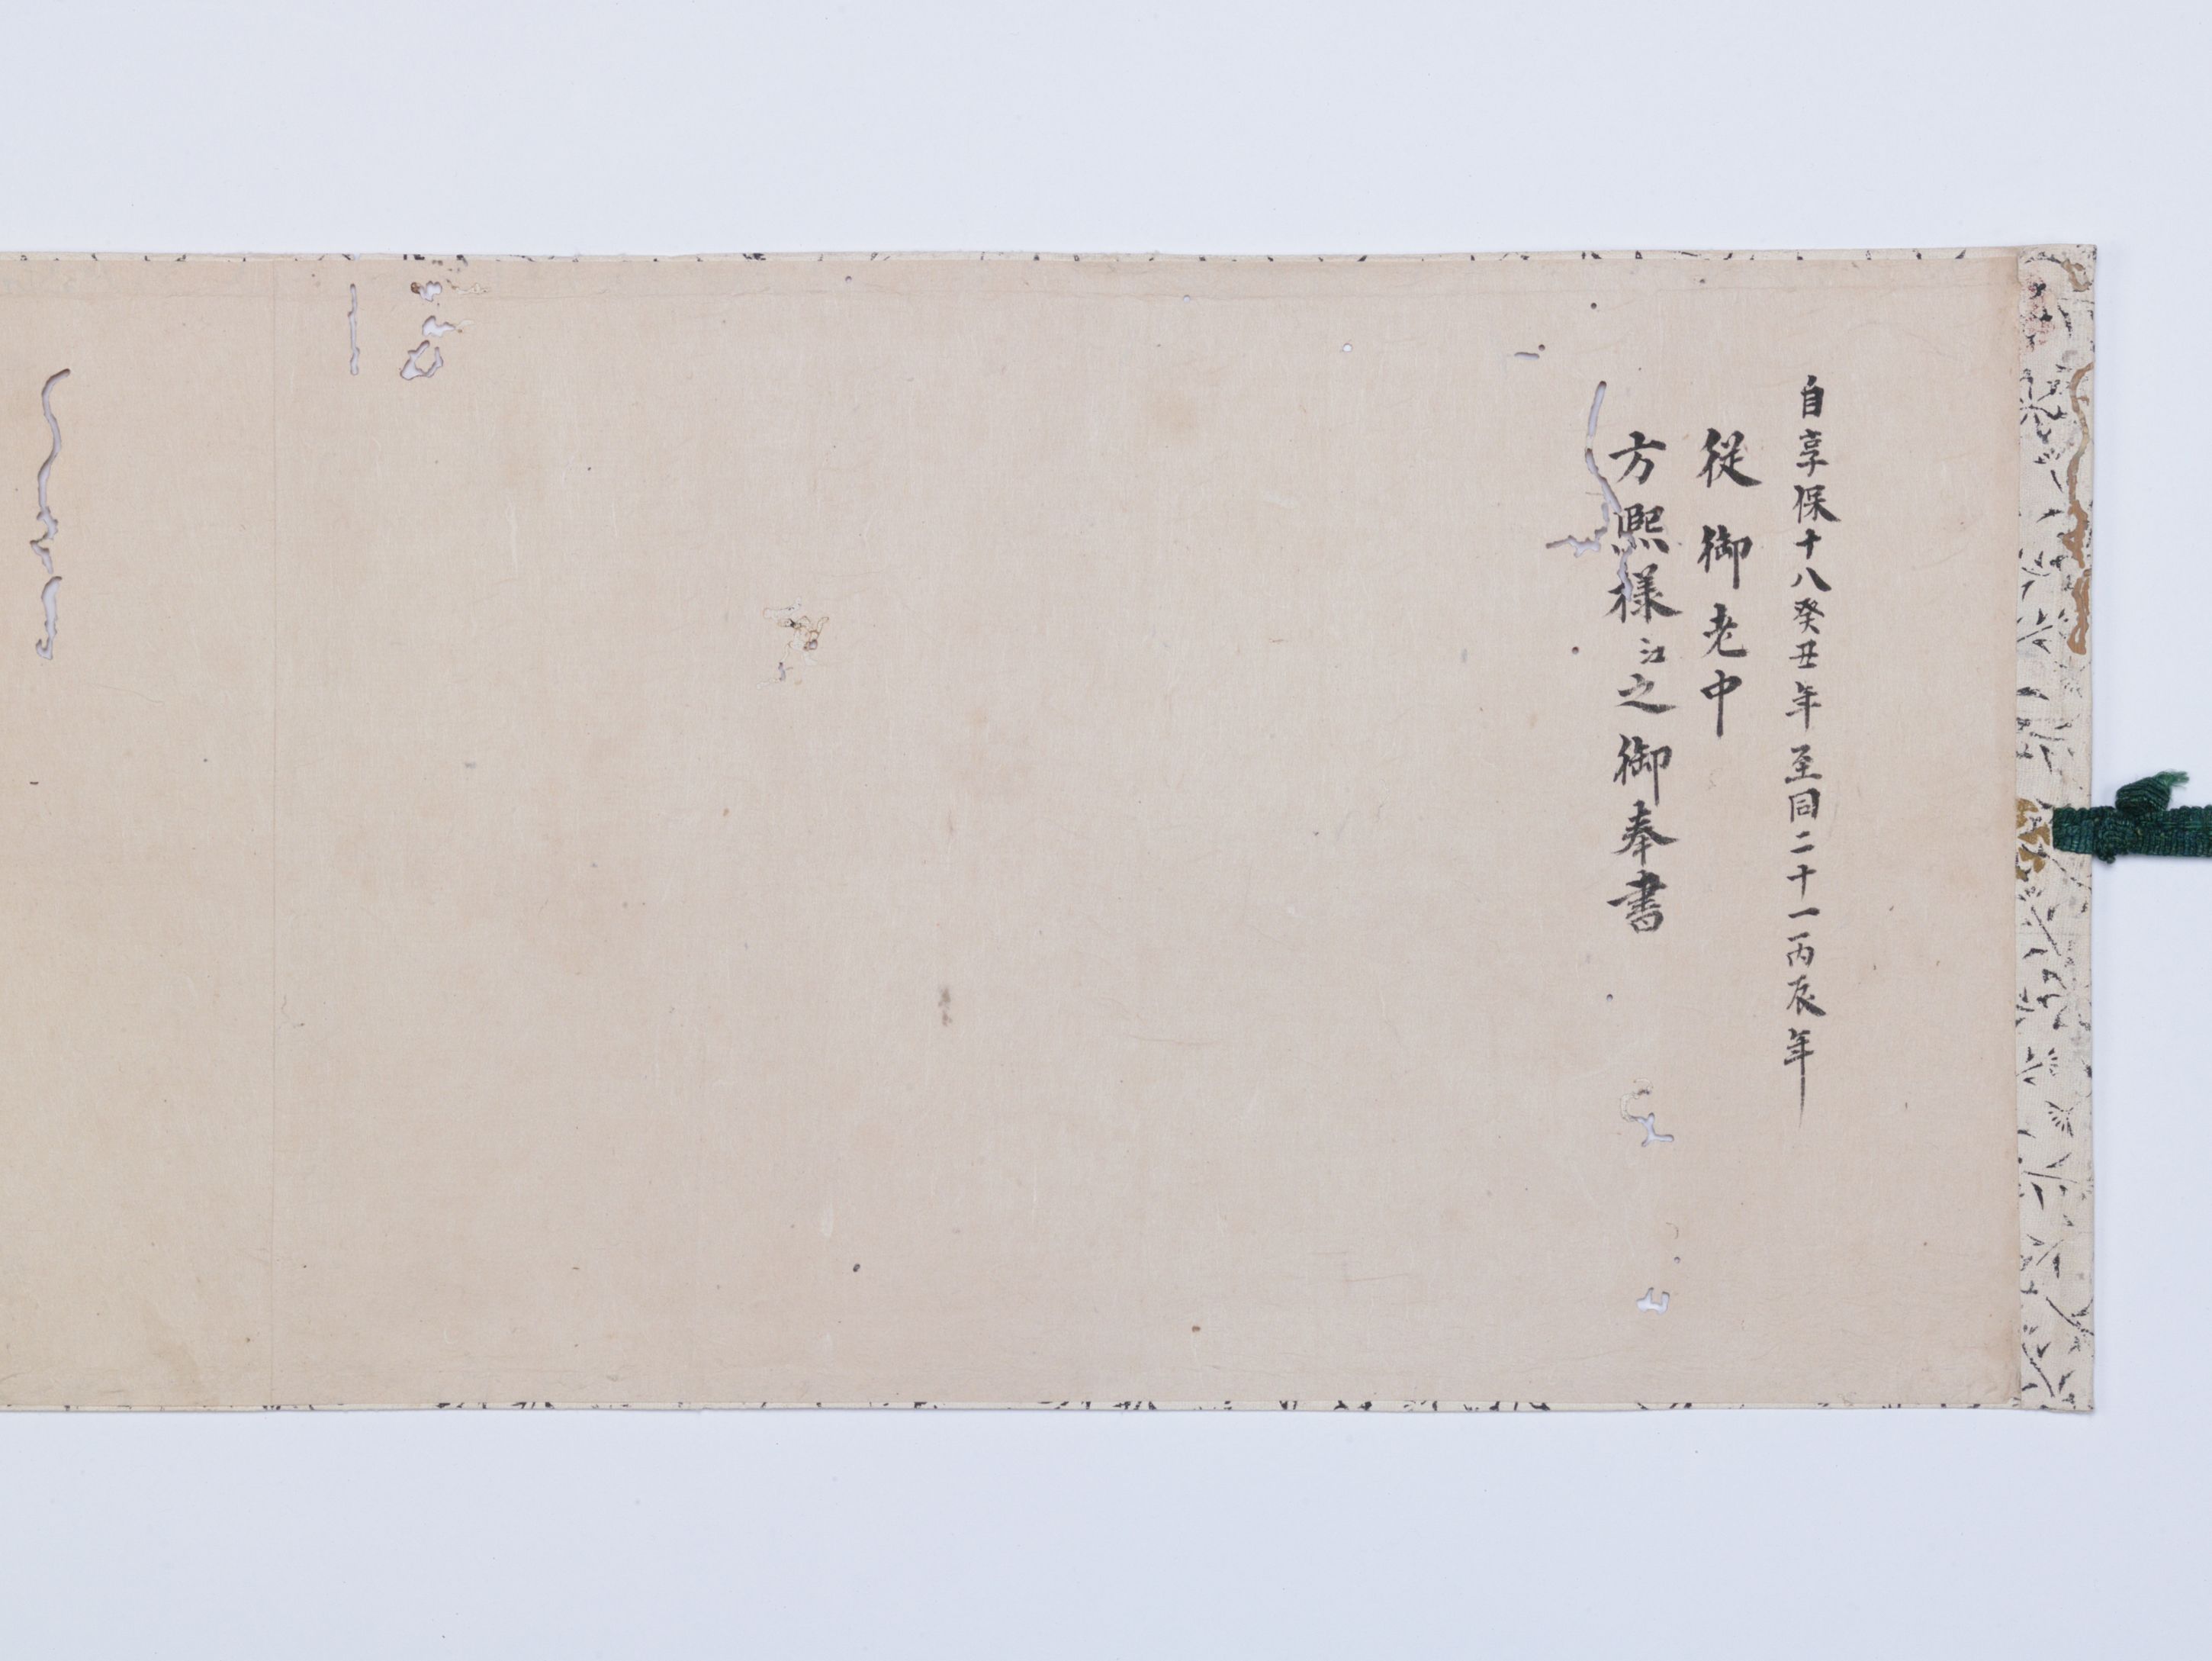 自享保十八癸丑年至同二十一丙辰年
従御老中
方熈様江之御奉書